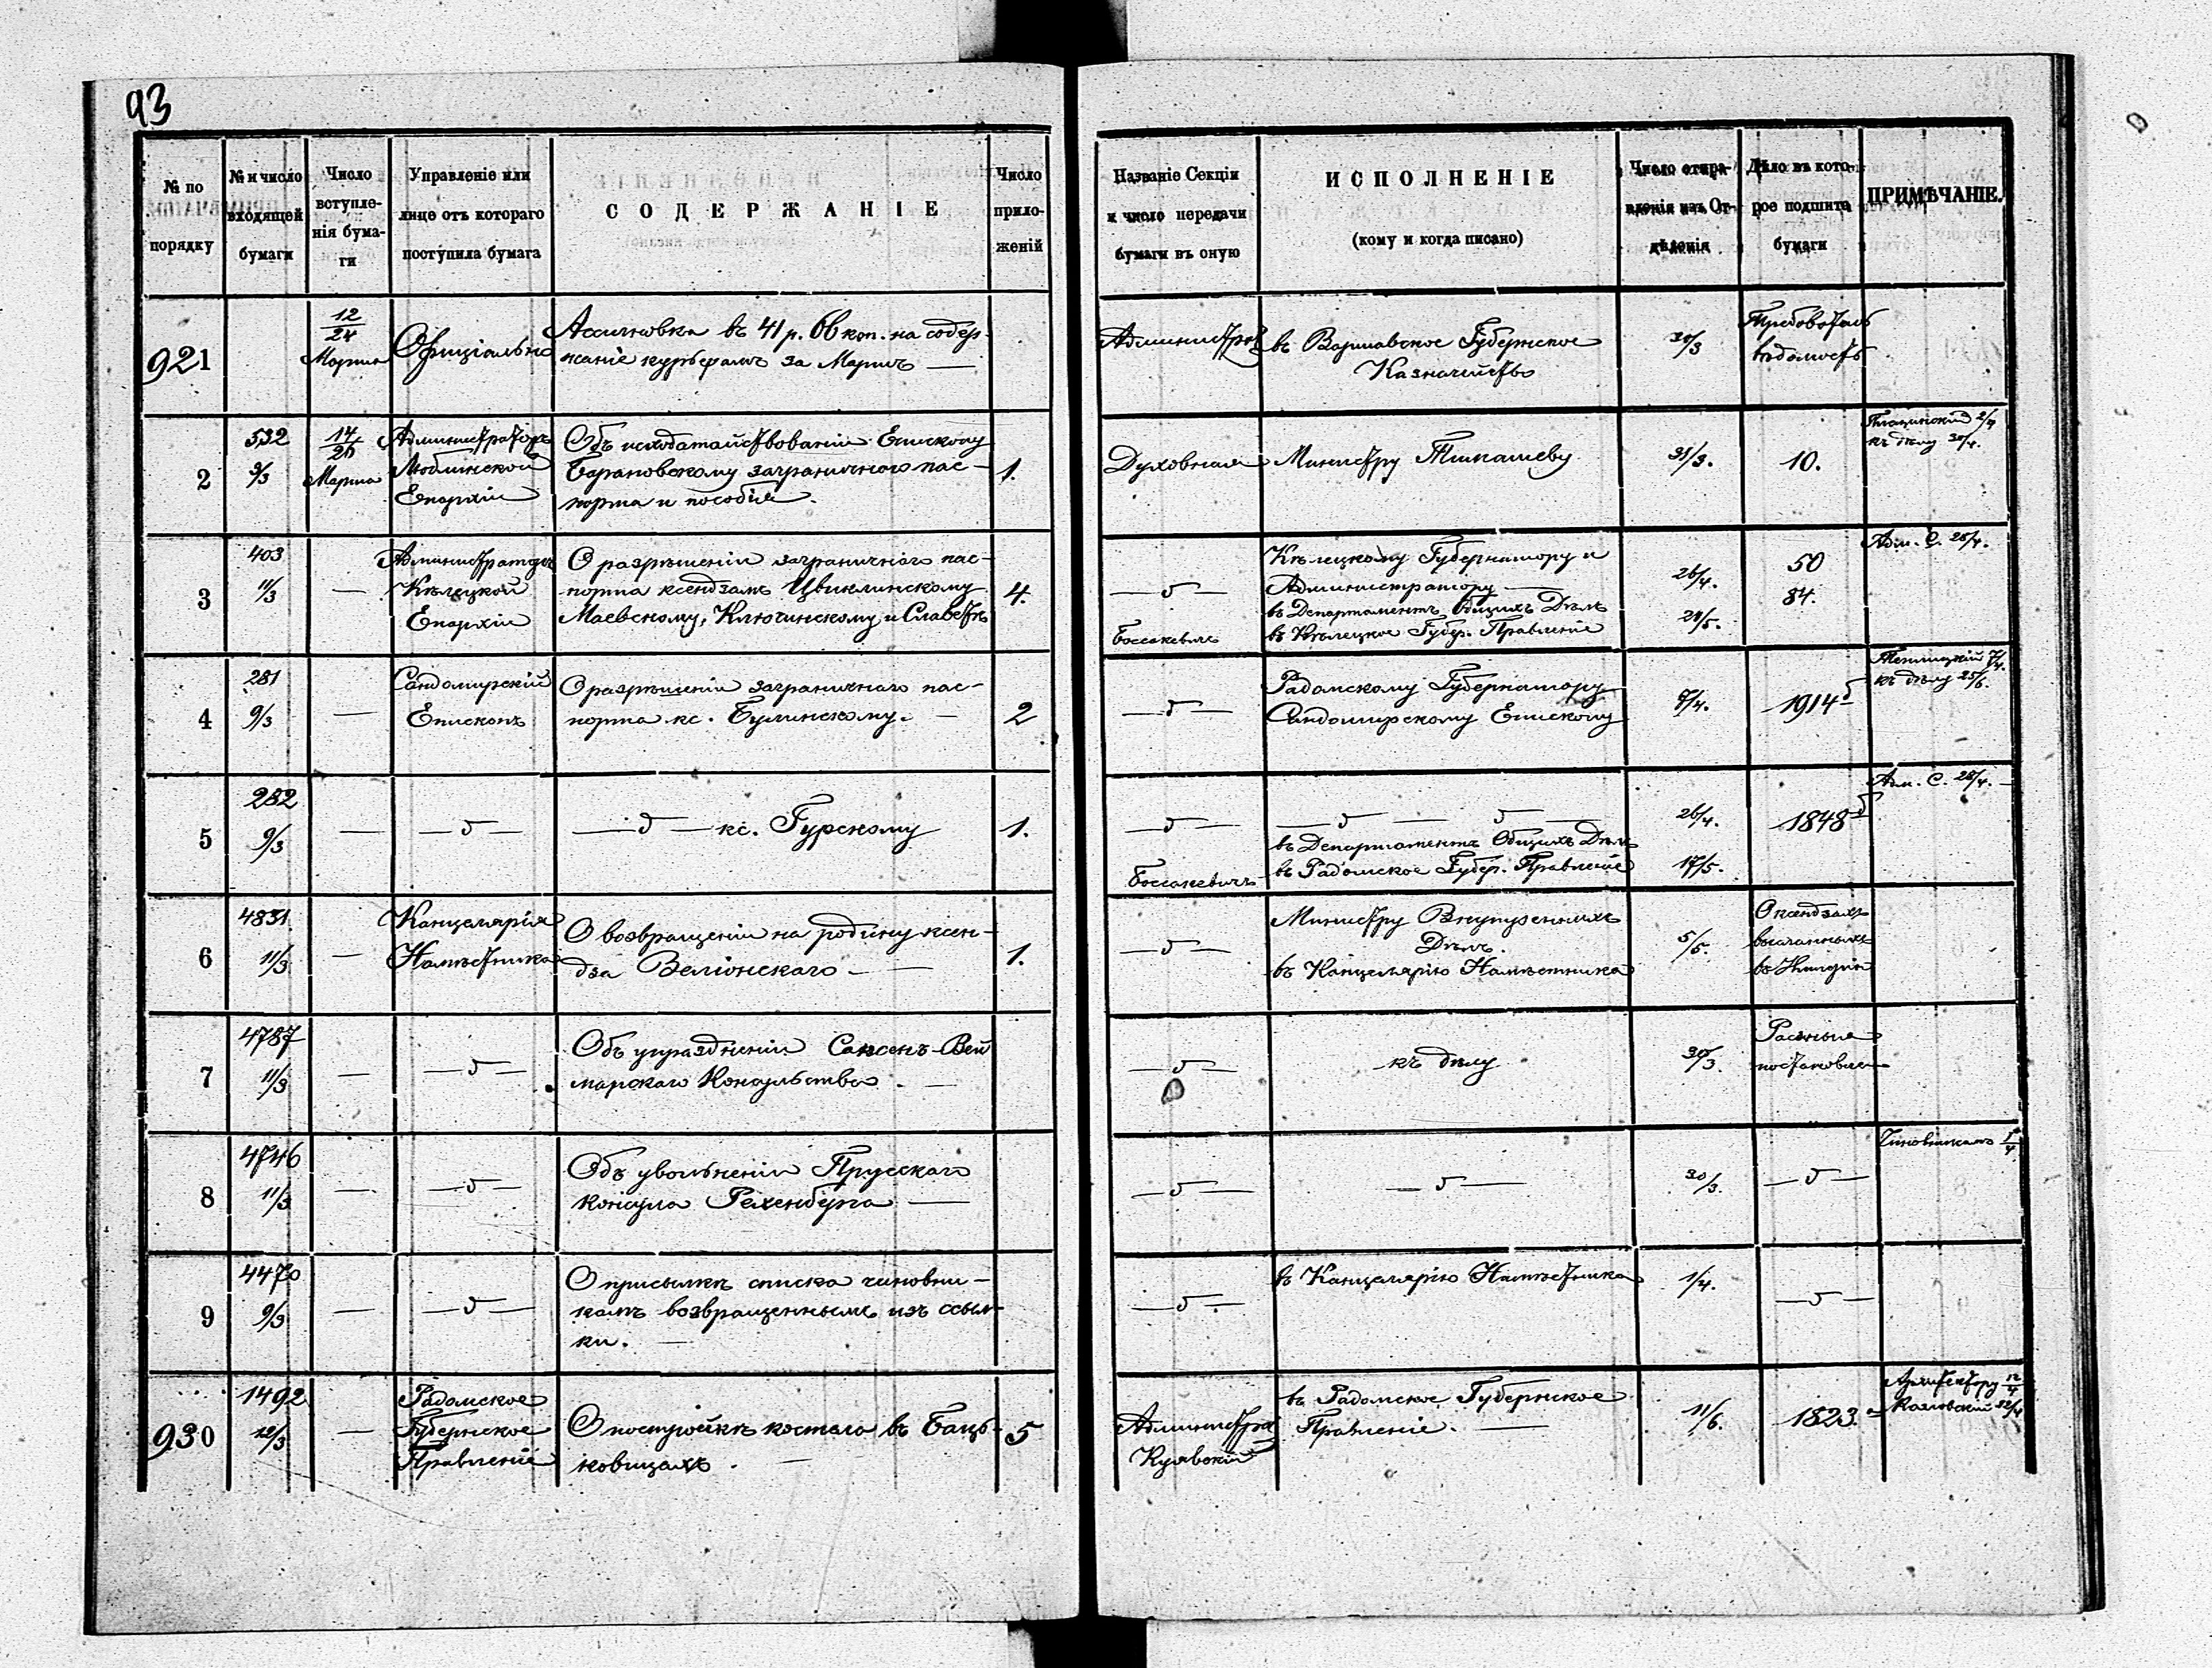 93
№ по порядку
№ и число входящей бумаги
Число вступленія бумаги
Управленіе или лице отъ котораго поступила бумага
СОДЕРЖАНІЕ
Число приложеній
Названіе Секціи и число передачи бумаги въ оную
ИСПОЛНЕНІЕ
(кому и когда писано)
Число отправленія изъ Отдѣленія
Дѣло въ которое подшита бумаги
ПРИМѢЧАНІЕ.
921
12/24
Марта
Офиціально
Ассигновка въ 41 р. 66 коп. на содер-
жаніе курьерамъ за Мартъ
въ Варшавское Губернское
Казначейство
30/3
2
532
9/3
14/26
Марта
Администраторъ
Люблинской
Епархіи
Объ исходатайствованіи Епископу
Барановскому заграничного пас-
порта и пособія.
1.
Духовная
Министру Тимашеву
31/3.
10.
къ дѣлу 30/4.
3
403
11/3
Администраторъ
Кѣлецкой
Епархіи
О разрѣшеніи заграничнаго пас-
порта ксендзамъ Цвиклинскому
Маевскому, Ключинскому и Славетѣ
4.
Кѣлецкому Губернатору и
Администратору
въ Департаментъ Общихъ Дѣлъ
въ Кѣлецкое Губер. Правленіе
26/4.
50
84.
Адм. С. 28/4.
4
281
9/3
Сандомирскій
Епископъ
О разрѣшеніи заграничнаго пас-
порта кс. Булинскому.
2
Радомскому Губернатору
Сандомирскому Епископу
7/4.
1914
къ дѣлу 25/6.
5
282
9/3
кс. Гурскому
1.
Боссакевичъ
въ Департаментъ Общихъ Дѣлъ
въ Радомское Губер. Правленіе
26/4.
17/5.
1848
Адм. С. 28/4.
6
4831
11/3
Канцелярія
Намѣстника
О возвращеніи на родину ксен-
дза Веліонскаго
1.
Министру Внутреннихъ
Дѣлъ.
въ Канцелярію Намѣстника
5/5.
О ксендзахъ
высланныхъ
въ Имперію
7
4787
11/3
Объ упраздненіи Саксенъ-Вей
марскаго Консульства.
къ дѣлу
30/3.
Разныя
постановлен
8
4746
11/3
Объ увольненіи Прусскаго
консула Рехенберга
30/3.
Чиновникамъ
9
4470
9/3
О присылкѣ списка чиновни-
камъ возвращеннымъ изъ ссыл-
ки.
въ Канцелярію Намѣстника
1/4.
930
1492
12/3
Радомское
Губернское
Правленіе
О постройкѣ костела въ Баць-
ковицахъ.
5
Куявскій
въ Радомское Губернское
Правленіе.
11/6.
1823
Архитектору 12/4